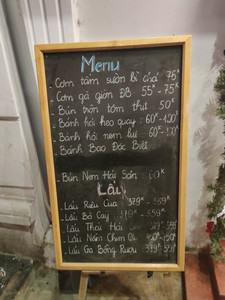 Menu
- Cơm tấm sườn bì chả 75K
- Cơm gà giòn ĐB 55K - 75K
- Bún trộn tôm thịt 50K
- Bánh hỏi heo quay: 60K -
- Bánh hỏi nem lụi: 60K -
- Bánh Bao Đặc Biệt
- Bún Nem Hải Sản
Lẩu
- Lẩu Riêu Cua 379K - 559K
- Lẩu Bò Cay - 559K
- Lẩu Thái Hải
- Lẩu Nấm Chim
- Lẩu Gà Bỗng Rượu